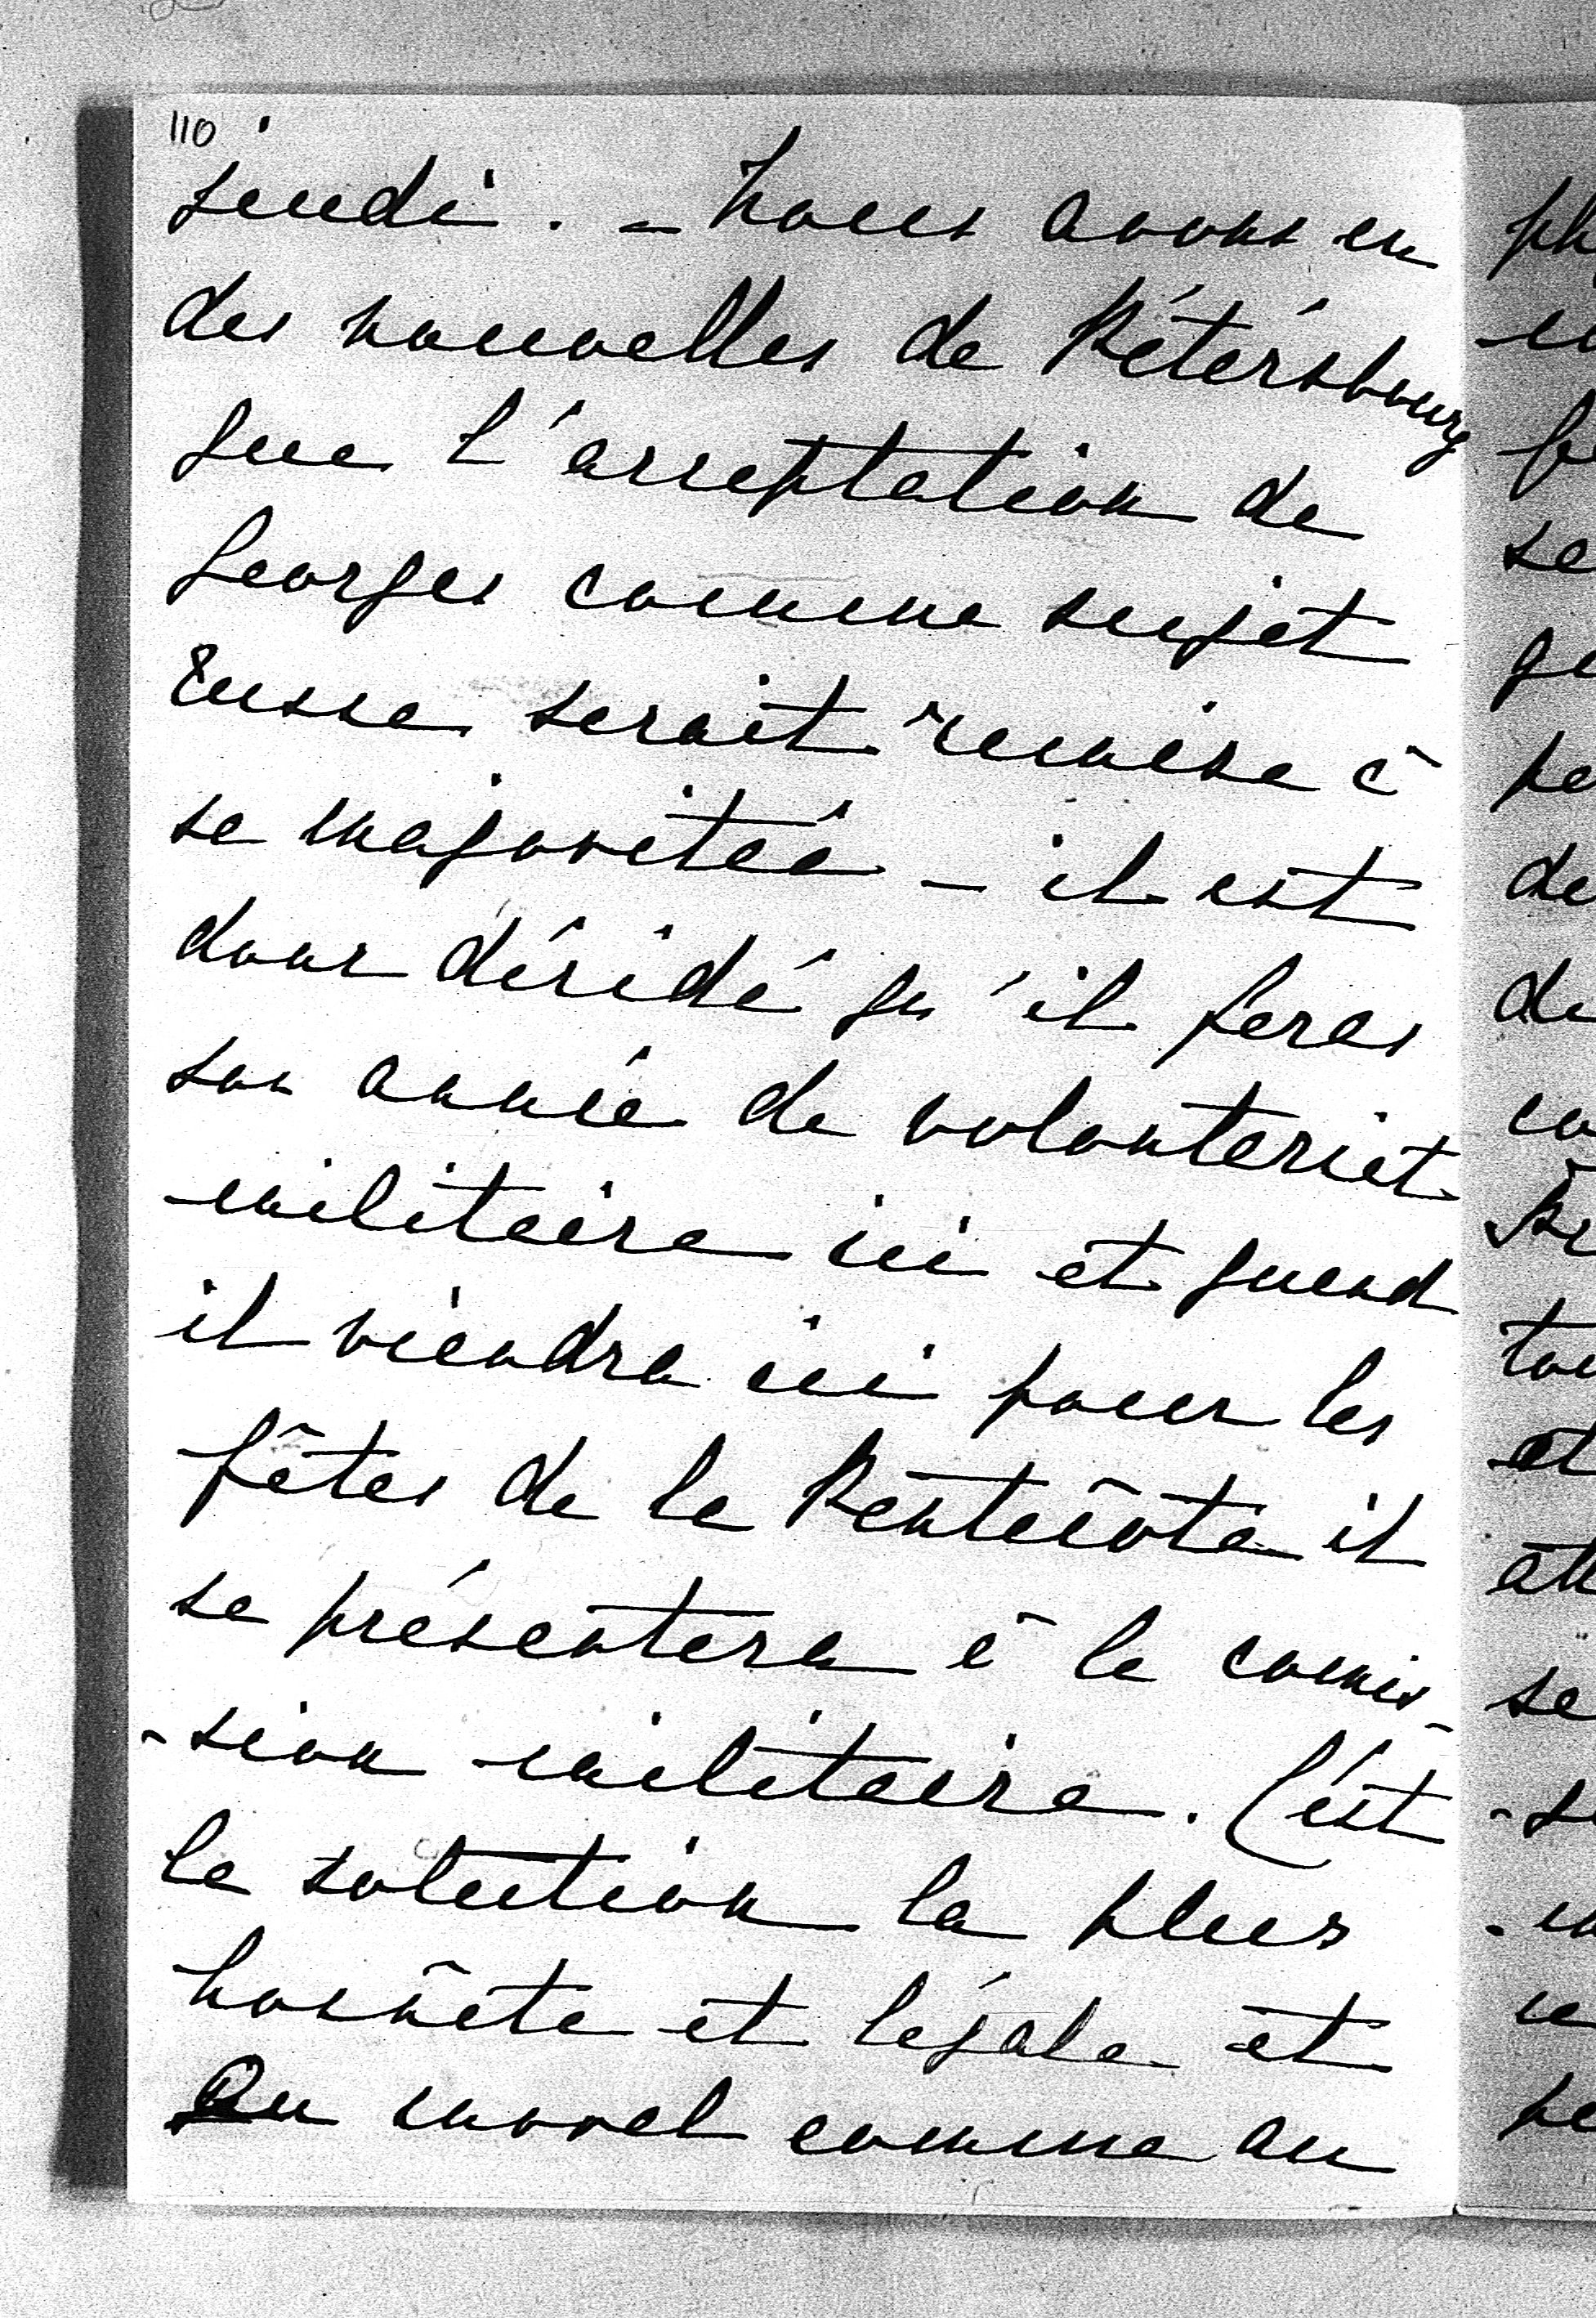 110
jeudi. – Nous avons eu
des nouvelles de Pétérsbourg
que l'acceptation de
Georges comme sujet
Russe serait remise à
sa majoritée – il est
donc décidé qu'il feras
son année de volontariat
militaire ici et quand
il viendra ici pour les
fêtes de la Pentecôte il
se présentera à la comis-
-sion militaire. C'est
la solution la plus
honnête et légale et
au moral comme au